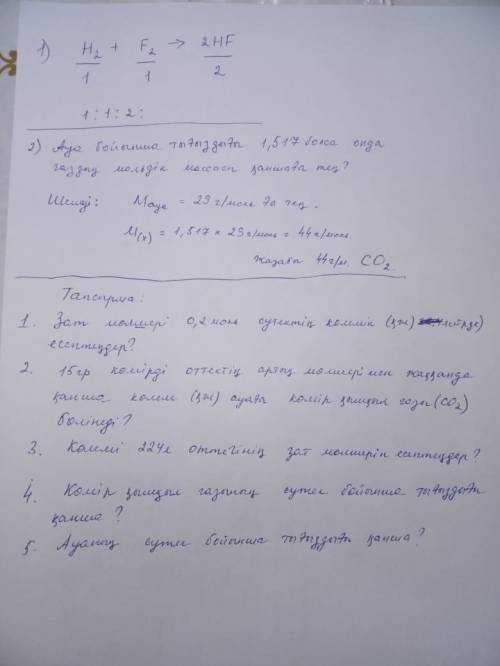 1) H2 + F2 → 2HF
1 1 2
1 : 1 : 2 :
2) Ауа бойынша тығыздығы 1,517 болса онда
газдың мольдік массасы қаншаға тең?
Шешуі: Mауа = 29 г/моль ға тең.
M(x) = 1,517 × 29 г/моль = 44 г/моль.
Жауабы 44 г/м. CO2.
Тапсырма:
1. Зат мөлшері 0,2 моль сутектің көлемін (қж) есептеңдер?
2. 15гр көмірді оттектің артық мөлшерімен жаққанда
қанша көлем (қж) ауада көмір қышқыл газы (CO2)
бөлінеді?
3. Көлемі 224л оттегінің зат мөлшерін есептеңдер?
4. Көмір қышқыл газының сутек бойынша тығыздығы
қанша?
5. Ауаның сутек бойынша тығыздығы қанша?